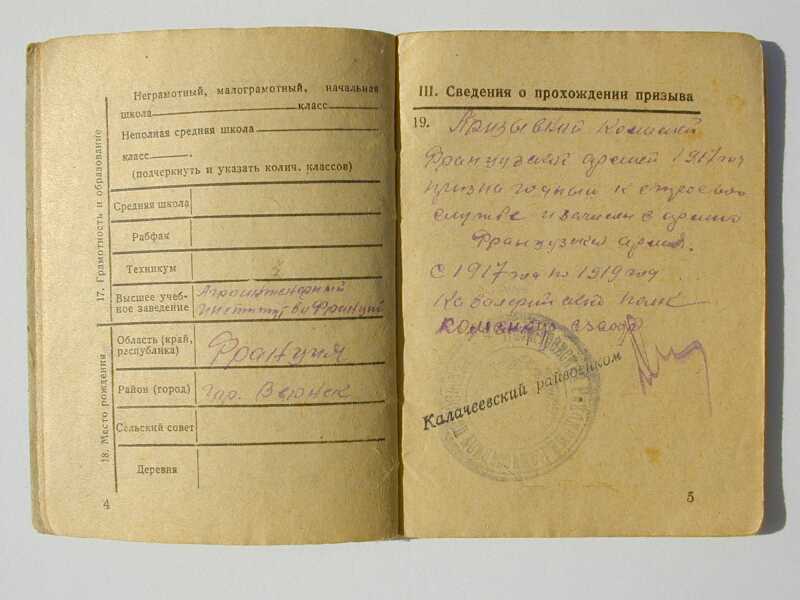 17. Грамотность и образование
Неграмотный, малограмотный, начальная
школа класс
Неполная средняя школа
класс .
(подчеркнуть и указать колич. классов)
Средняя школа
Рабфак
Техникум
Высшее учеб-
ное заведение
Институт во Франции
18. Место рождения
Область (край,
республика) Франция
Район (город) гор.
Сельский совет
Деревня
4
III. Сведения о прохождении призыва
19. Призывной Комисией
Французской армией 1917 год
признан годным к строевой
службе и зачислен в армию
Французской армии.
с 1917 год по 1919 год
Кавалерийский полк
Калачеевский райвоенком
5